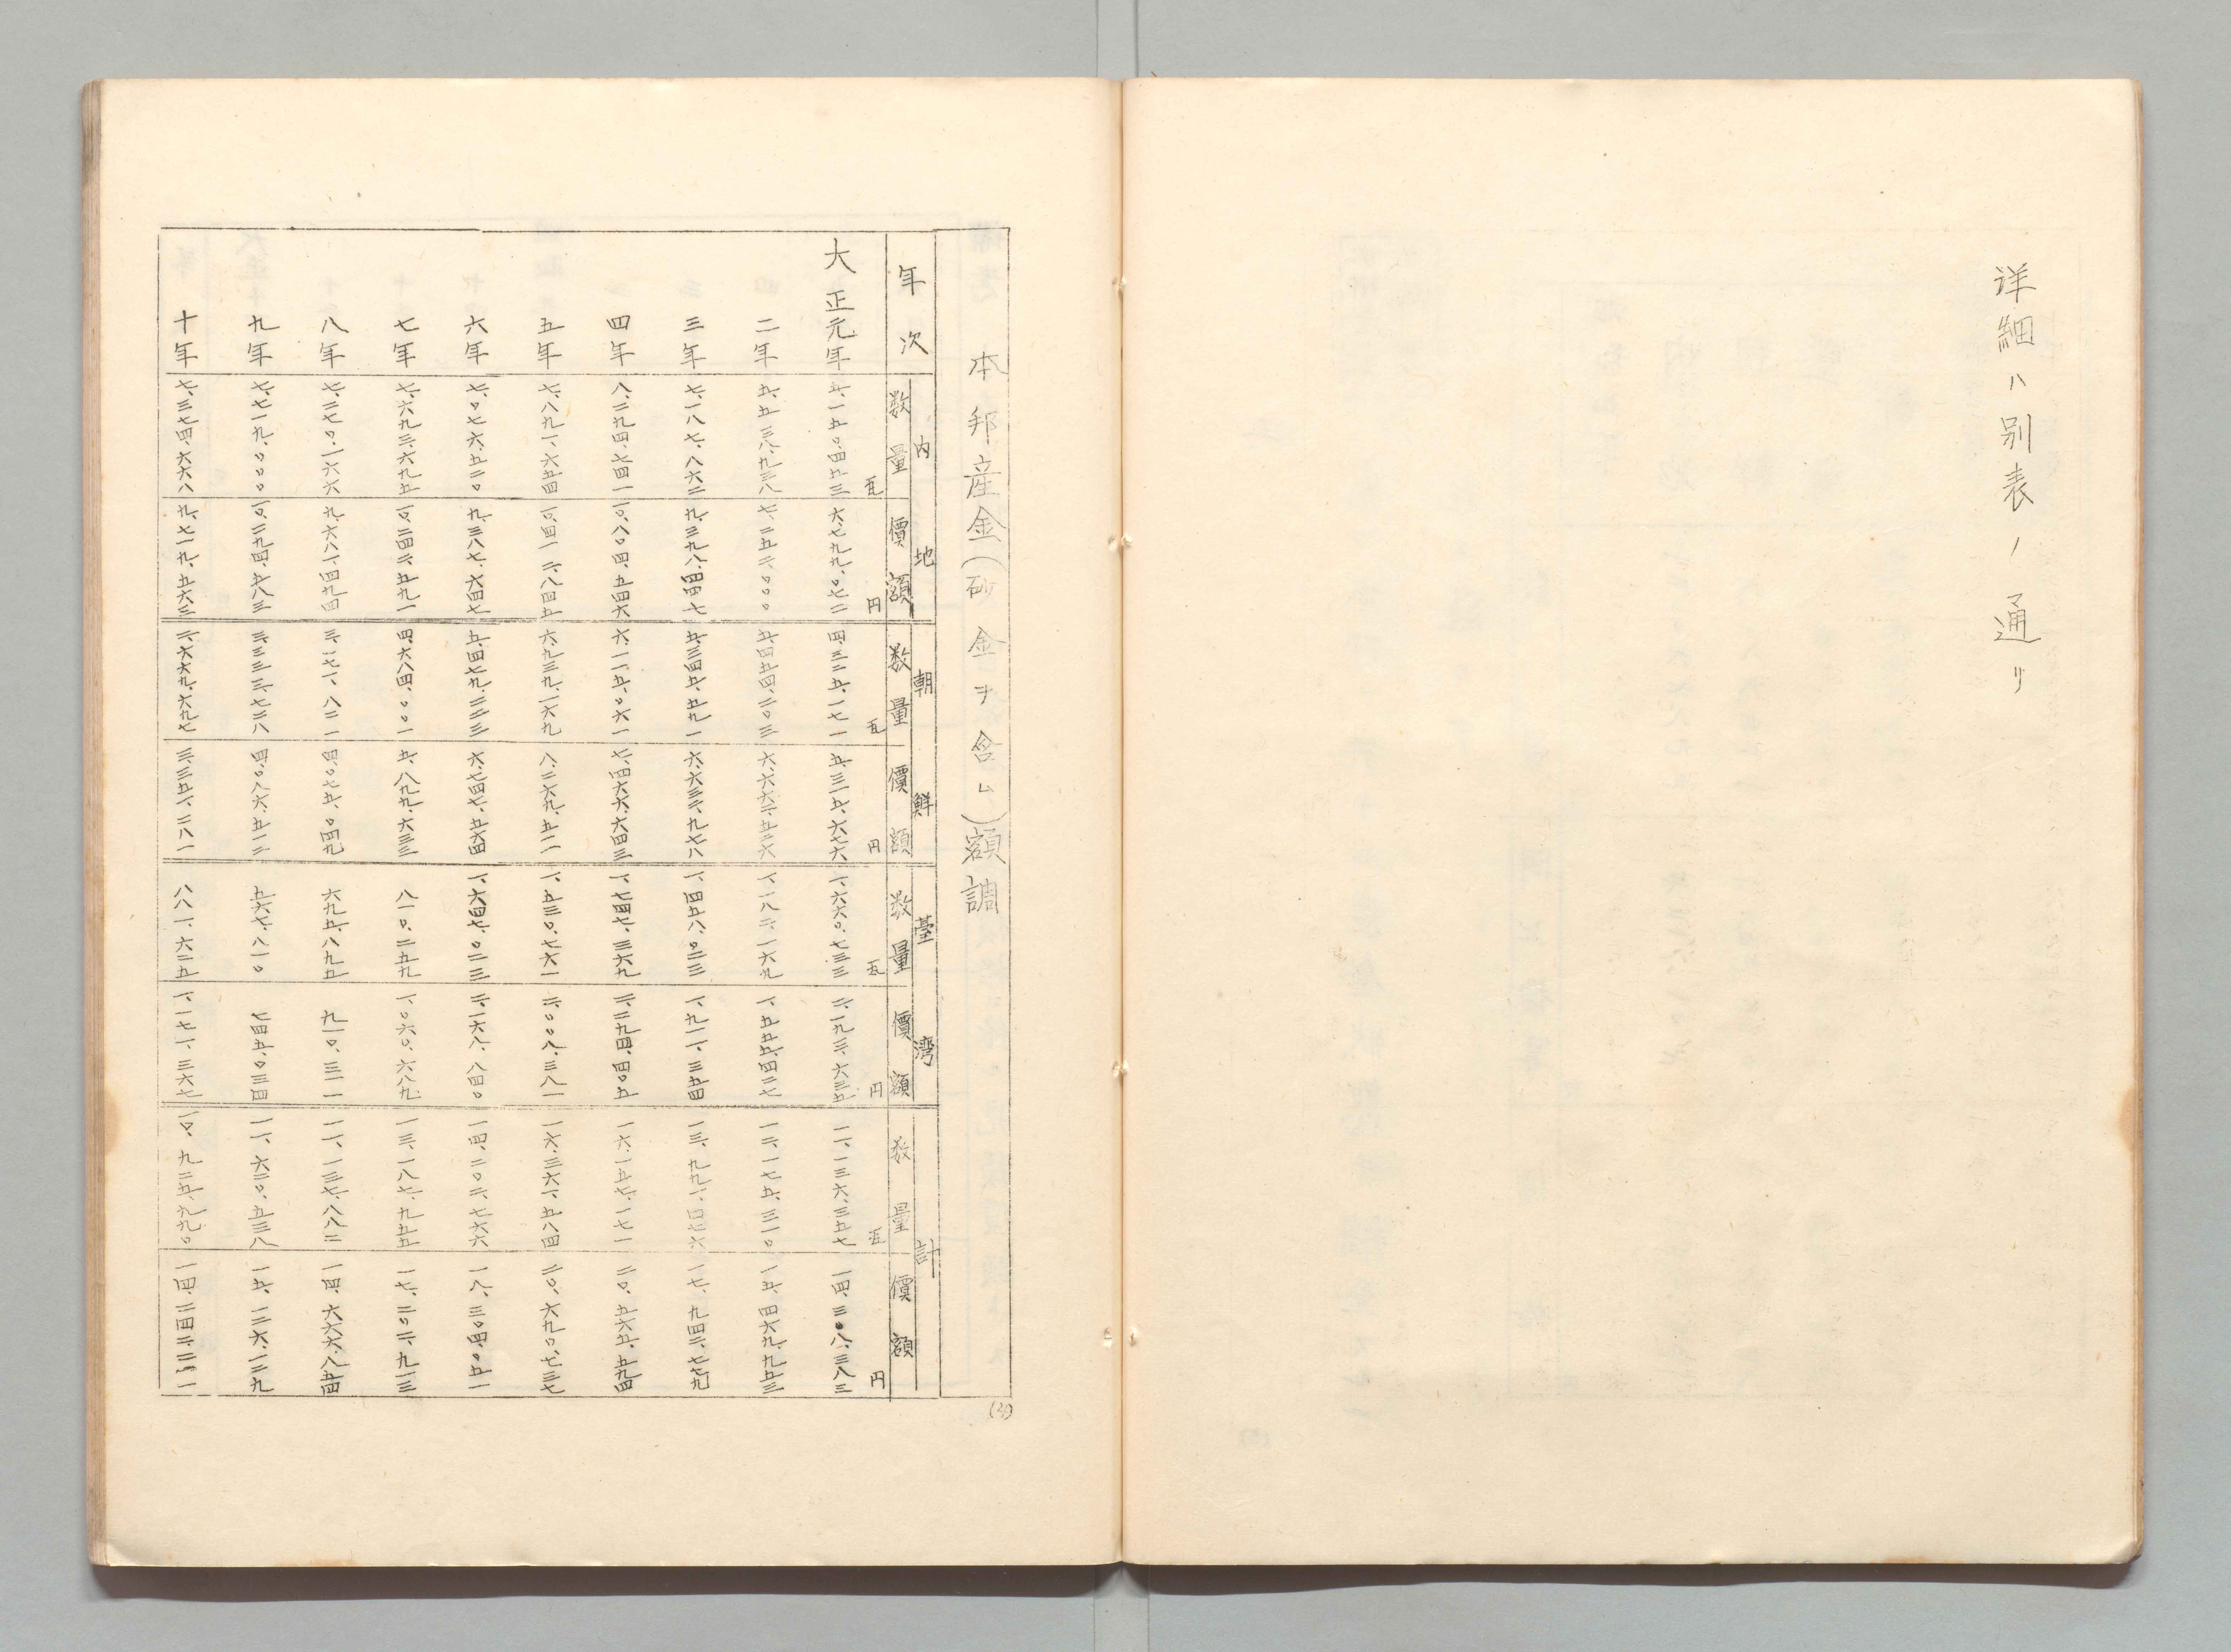 詳細ハ別表ノ通リ
本邦産金(砂金ヲ含ム)額調
内地 朝鮮 臺湾 計
年次 数量 價額 数量 價額 数量 價額 数量 價額
瓦 円 瓦 円 瓦 円 瓦 円
大正元年 五、一五〇、四五三 六、七九九、〇七二 四、三二五、一七一 五、三一五、六七六 一、六六〇、七三三 二、一九三、六三五 一一、一三六、三五七 一四、三〇八、三八三
二年 五、五三八、九三八 七、二五二、〇〇〇 五、四五四、二〇三 六、六六二、五二六 一、一八二、一六九 一、五五五、四二七 一二、一七五、三一〇 一五、四六九、九五三
三年 七、一八七、八六二 九、三九八、四四七 五、三四五、五九一 六、六三二、九七八 一、四五八、〇二三 一、九一一、三五四 一三、九九一、四七六 一七、九四二、七七九
四年 八、二九四、七四一 一〇、八〇四、五四六 六、一一五、〇六一 七、四六六、六四三 一、七四七、三六九 二、二九四、四〇五 一六、一五七、一七一 二〇、五六五、五九四
五年 七、八九一、六五四 一〇、四一二、八四五 六、九三九、一六九 八、二六九、五一一 一、五三〇、七六一 二、〇〇八、三八一 一六、三六一、五八四 二〇、六九〇、七三七
六年 七、〇七六、五二〇 九、三八七、六四七 五、四七九、二二三 六、七四七、五六四 一、六四七、〇二三 二、一六八、八四〇 一四、二〇二、七六六 一八、三〇四、〇五一
七年 七、六九三、六九五 一〇、二四二、五九一 四、六八四、〇〇一 五、八九九、六三三 八一〇、二五九 一、〇六〇、六八九 一三、一八七、九五五 一七、二〇二、九一三
八年 七、二七〇、一六六 九、六八一、四九四 三、一七一、八二一 四、〇七五、〇四九 六九五、八九五 九一〇、三一一 一一、一三七、八八二 一四、六六六、八五四
九年 七、七一九、〇〇〇 一〇、二九四、五八三 三、三三三、七二八 四、〇八六、五一二 五六七、八一〇 七四五、〇三四 一一、六二〇、五三八 一五、一二六、一二九
十年 七、三七四、六六八 九、七一九、五六三 二、六六九、六九七 三、三五一、二八一 八八一、六二五 一、一七一、三六七 一〇、九二五、九九〇 一四、二四二、二一一